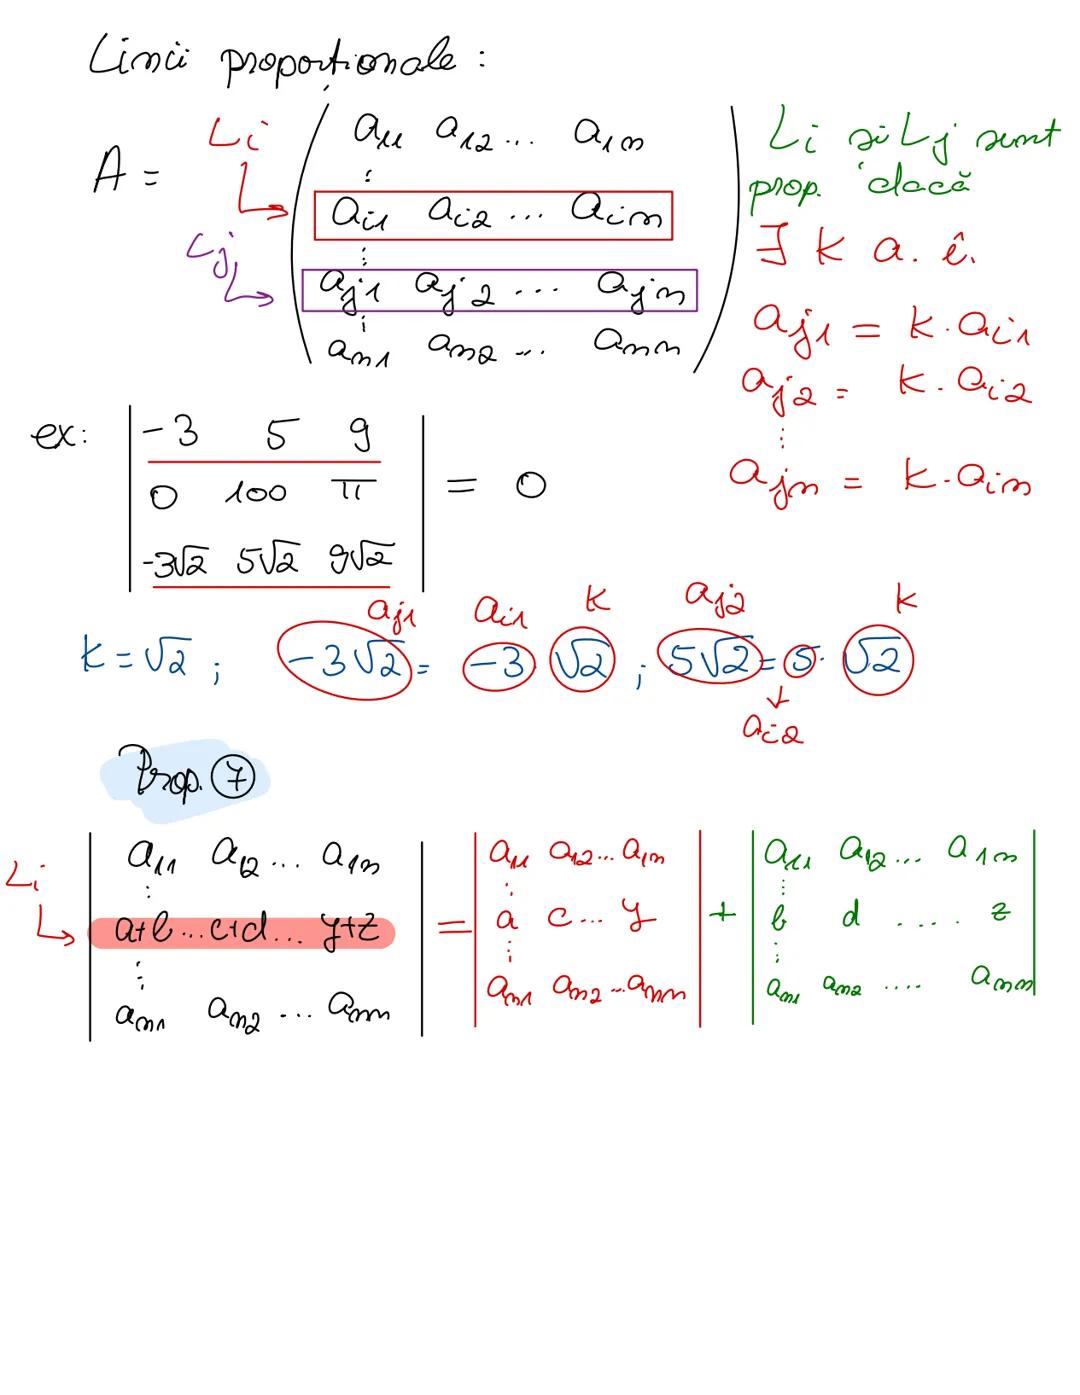 Linii proporționale :
A =
Li
Lj
a11 a12 ... a1n
⋮
ai1 ai2 ... ain
⋮
aj1 aj2 ... ajn
⋮
an1 an2 ... ann
Li și Lj sunt
prop. dacă
∃ k a. î.
aj1 = k.ai1
aj2 = k.ai2
⋮
ajn = k.ain
ex:
-3 5 9
0 100 π
-3√2 5√2 9√2
= 0
aj1 ai1 k aj2 k
k = √2 ; -3√2 = -3 √2 ; 5√2 = 5. √2
ai2
Prop. 7
Li
a11 a12 ... a1n
⋮
a+b ... c+d ... y+z
⋮
an1 an2 ... ann
=
a11 a12 ... a1n
⋮
a c ... y
⋮
an1 an2 ... ann
+
a11 a12 ... a1n
⋮
b d .... z
⋮
an1 an2 .... ann